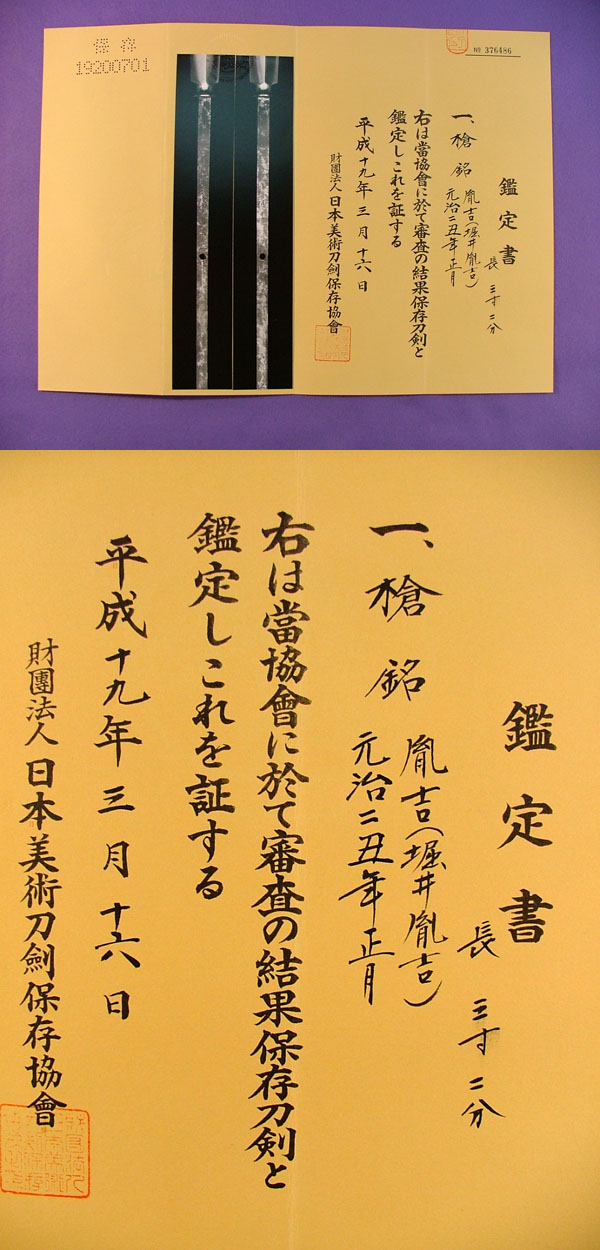 保存
19200701
№ 376486
鑑定書
長 三寸二分
一、槍 銘 胤吉(堀井胤吉)
元治二丑年正月
右は當協會に於て審査の結果保存刀剣と
鑑定しこれを証する
平成十九年三月十六日
財團法人 日本美術刀劍保存協會
鑑定書
長 三寸二分
一、槍 銘 胤吉(堀井胤吉)
元治二丑年正月
右は當協會に於て審査の結果保存刀剣と
鑑定しこれを証する
平成十九年三月十六日
財團法人 日本美術刀劍保存協會